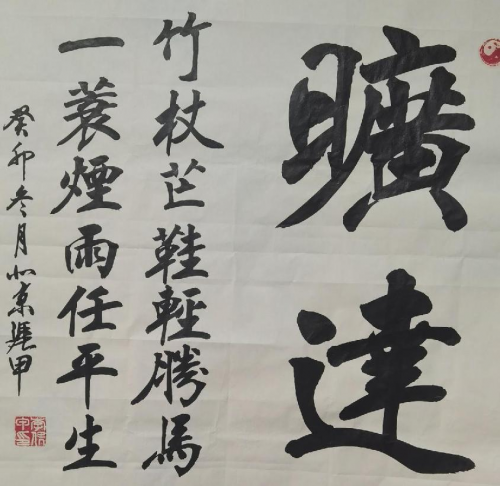 曠達
竹杖芒鞋輕勝馬
一蓑煙雨任平生
癸卯冬月北京張甲